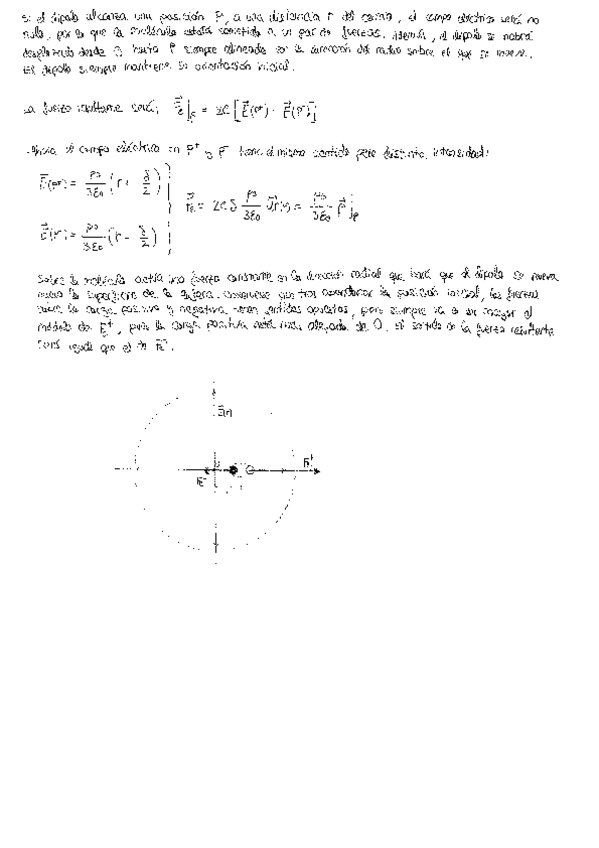 Si el dipolo alcanza una posición P, a una distancia r del centro, el campo eléctrico será no
nulo, por lo que la molécula estará sometida a un par de fuerzas. Además, el dipolo se habrá
desplazado desde O hasta P siempre alineado con la dirección del radio sobre el que se mueve.
El dipolo siempre mantiene su orientación inicial.
La fuerza resultante será: F⃗e|p = 2e [E⃗(P⁺) - E⃗(P⁻)]
Ahora el campo eléctrico en P⁺ y P⁻ tiene el mismo sentido pero distinta intensidad:
E⃗(P⁺) = ρ₀/3ε₀ (r + δ/2)
E⃗(P⁻) = ρ₀/3ε₀ (r - δ/2)
F⃗e = 2e δ ρ₀/3ε₀ u⃗r(r) = ρ₀/3ε₀ p⃗|p
Sobre la molécula actúa una fuerza constante en la dirección radial que hará que el dipolo se mueva
hacia la superficie de la esfera. tras abandonar la posición inicial, las fuerzas
sobre la carga positiva y negativa serán sentidos opuestos, pero siempre va a ser mayor el
módulo de Fe⁺, pues la carga positiva está más alejada de O. El sentido de la fuerza resultante
será igual que el de Fe⁺.
E⃗(r)
Fe⁻
Fe⁺